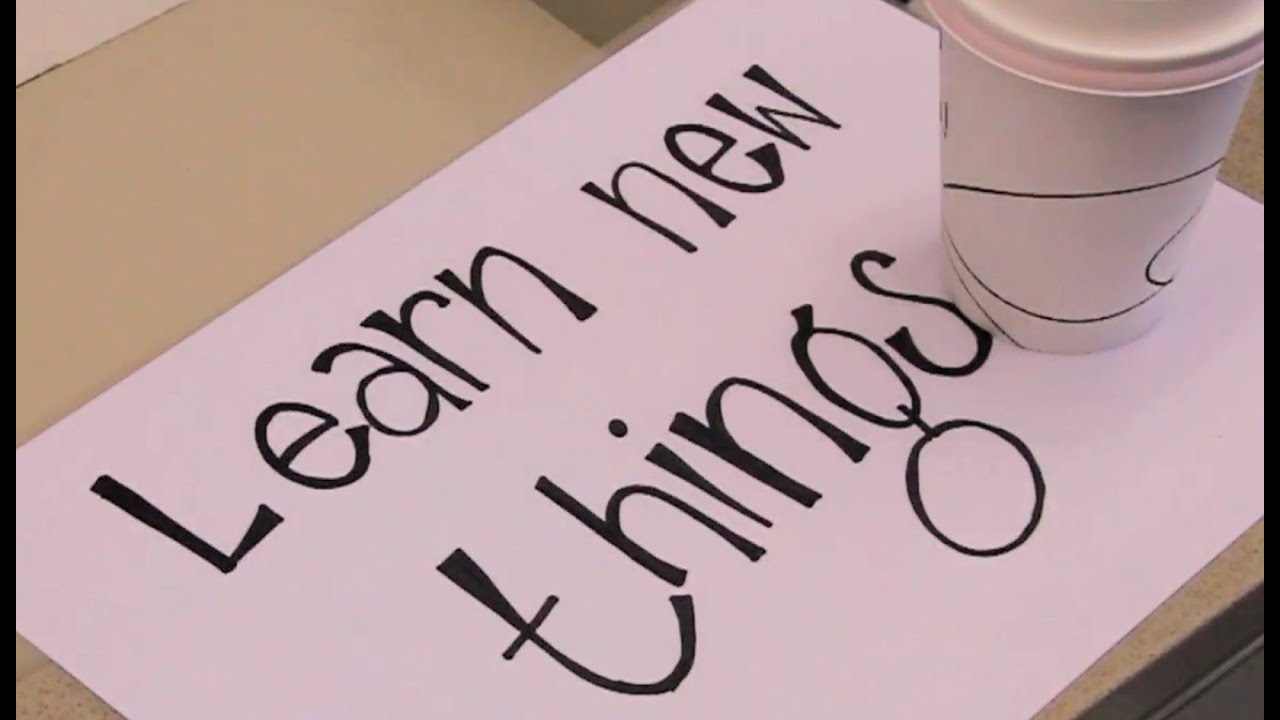 Learn new
things